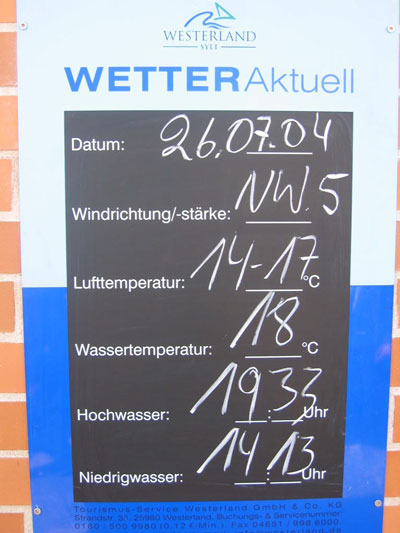 WESTERLAND
SYLT
WETTER Aktuell
Datum: 26.07.04
Windrichtung/-stärke: NW. 5
Lufttemperatur: 14-17 °C
Wassertemperatur: 18 °C
Hochwasser: 19:33 Uhr
Niedrigwasser: 14:13 Uhr
Tourismus-Service Westerland GmbH & Co. KG
Strandstr. 33, 25980 Westerland, Buchungs- & Servicenummer
0180 / 500 9980 (0,12 €/Min.), Fax 04651 / 998 6000,